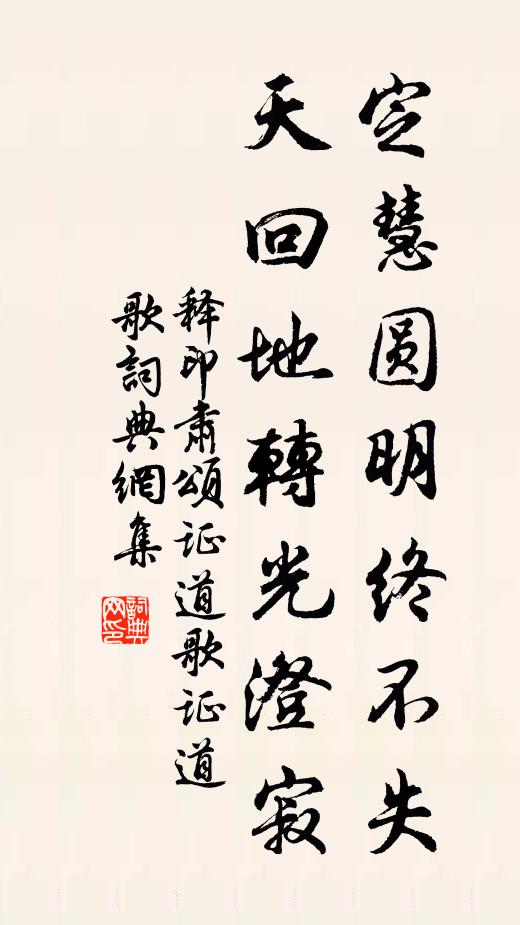 定慧圆明终不失
天回地轉光澄寂
释印肃頌证道歌证道
歌詞典網集
詞典网印